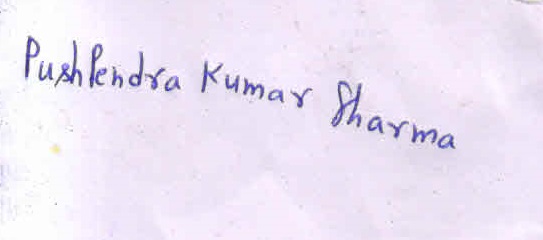 Pushpendra Kumar Sharma